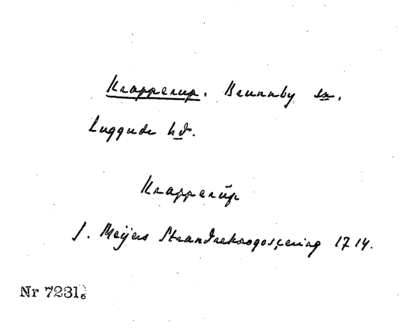 Krapperup. Brunnby sn.
Luggude hd.
Krapperüp
J. Meijers Strandrekognoscering 1714.
Nr 7231.